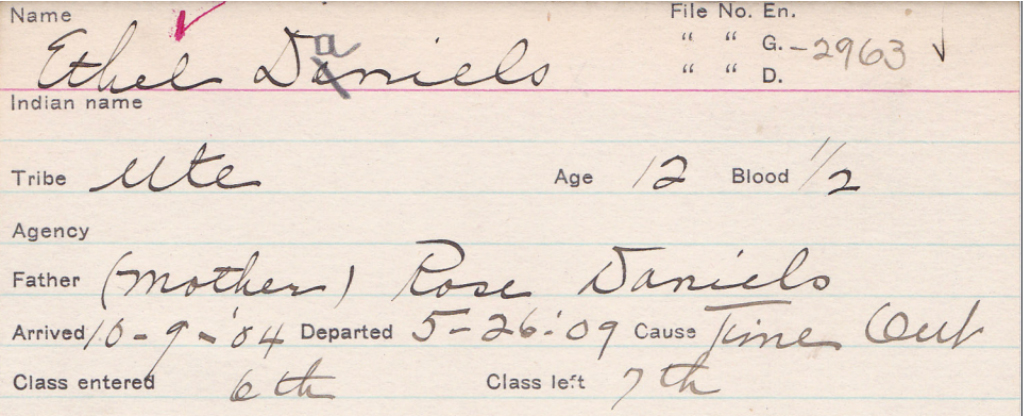 Name File No. En.
" " G. - 2963
Ethel Daniels " " D.
Indian name
Tribe Ute Age 12 Blood 1/2
Agency
Father (Mother) Rose Daniels
Arrived 10-9-'04 Departed 5-26-'09 Cause Time Out
Class entered 6th Class left 7th